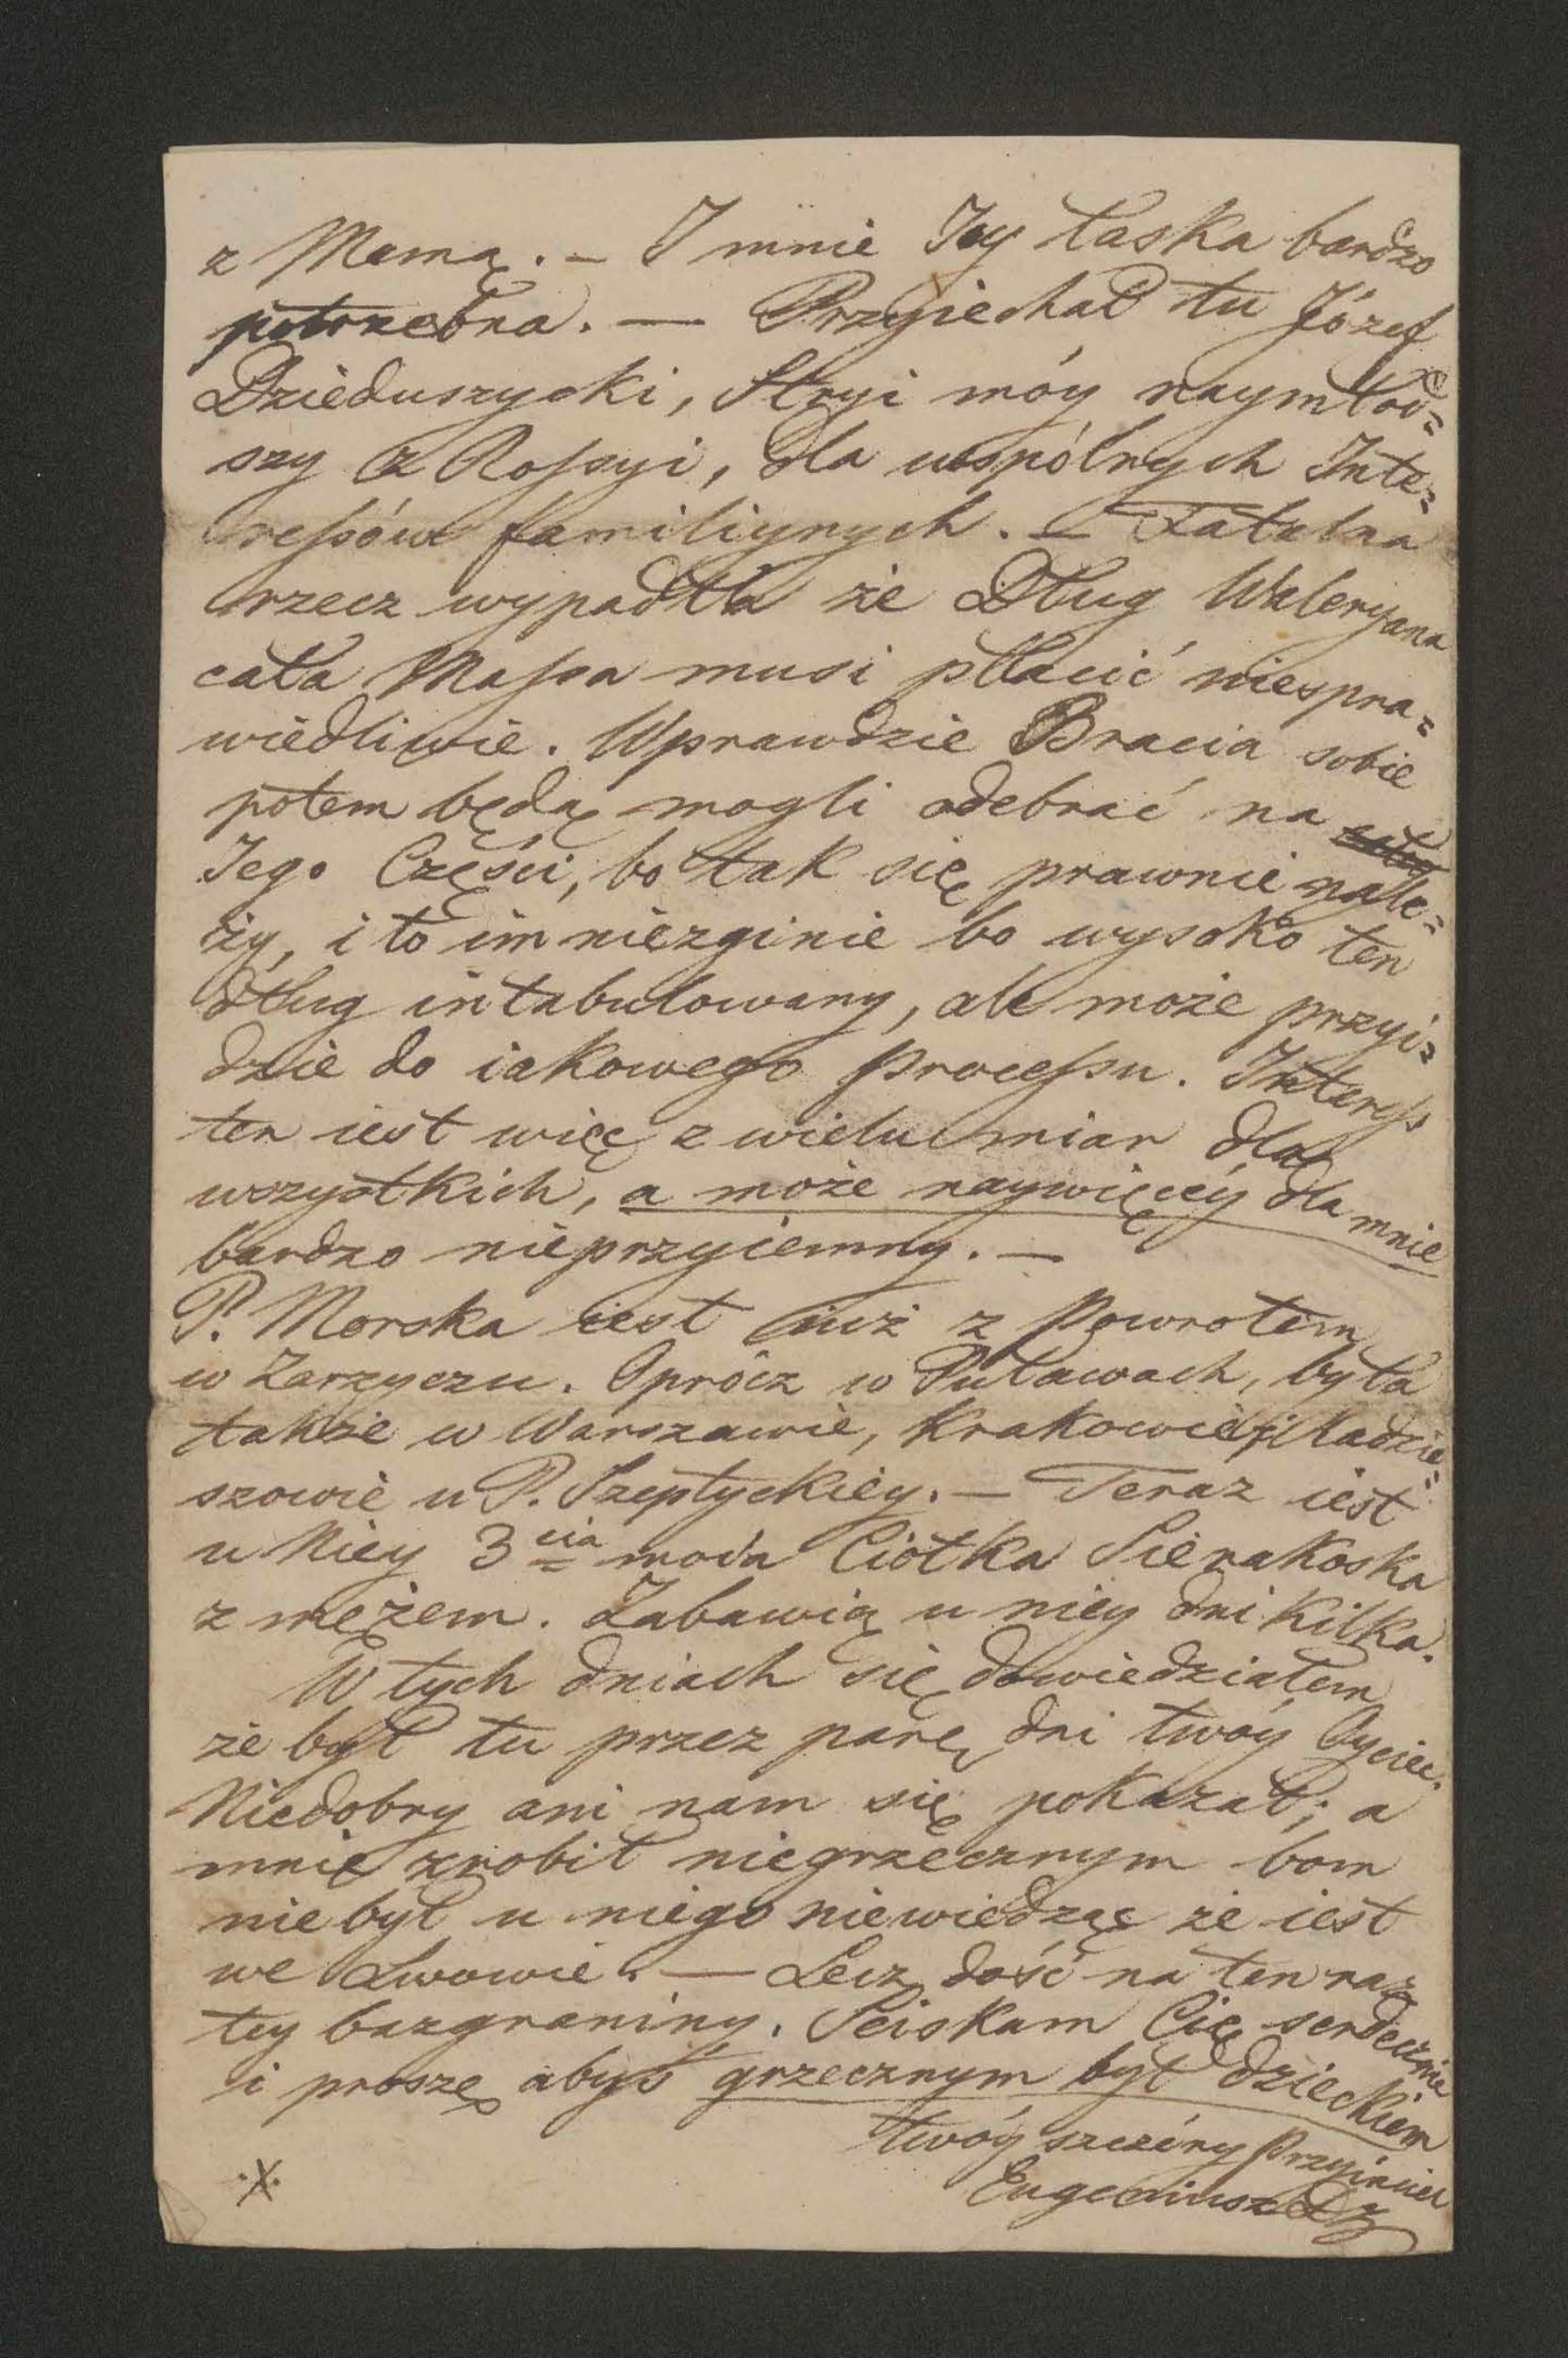 z Mamą. – I mnie Jey łaska bardzo
potrzebna. — Przyiechał tu Józef
Dzieduszycki, Stryi móy naymłod=
szy z Rossyi, dla wspólnych Inte=
ressów familiynych. – Fatalna
rzecz wypadła że Dług Waleryana
cała Massa musi płacić niespra=
wiedliwie. Wprawdzie Bracia sobie
potem będą mogli odebrać na
Jego Części, bo tak się prawnie nale=
ży, i to im niezginie bo wysoko ten
dług intabulowany, ale może przyi=
dzie do iakowego processu. Interess
ten iest więc z wielu miar dla
wszystkich, a może naywięcéy dla mnie
bardzo nieprzyiemny. —
P. Morska iest iuż z powrotem
w Zarzyczu. Oprócz w Puławach, była
także w Warszawie, Krakowie, i Radzie=
szowie u P. Szeptyckiey. – Teraz iest
u Niey 3cia moia Ciotka Sierakoska
z mężem. Zabawią u niey dni kilka.
W tych dniach się dowiedziałem
że był tu przez parę dni twóy Oyciec.
Niedobry ani nam się pokazał; a
mnie zrobił niegrzecznym bom
nie był u niego niewiedząc że iest
we Lwowie. — Lecz dość na ten raz
tey bazgraniny. Sciskam Cię serdecznie
i proszę abyś grzecznym był dzieckiem
twóy szczéry Przyiaciel
Eugeniusz Dz
.X.